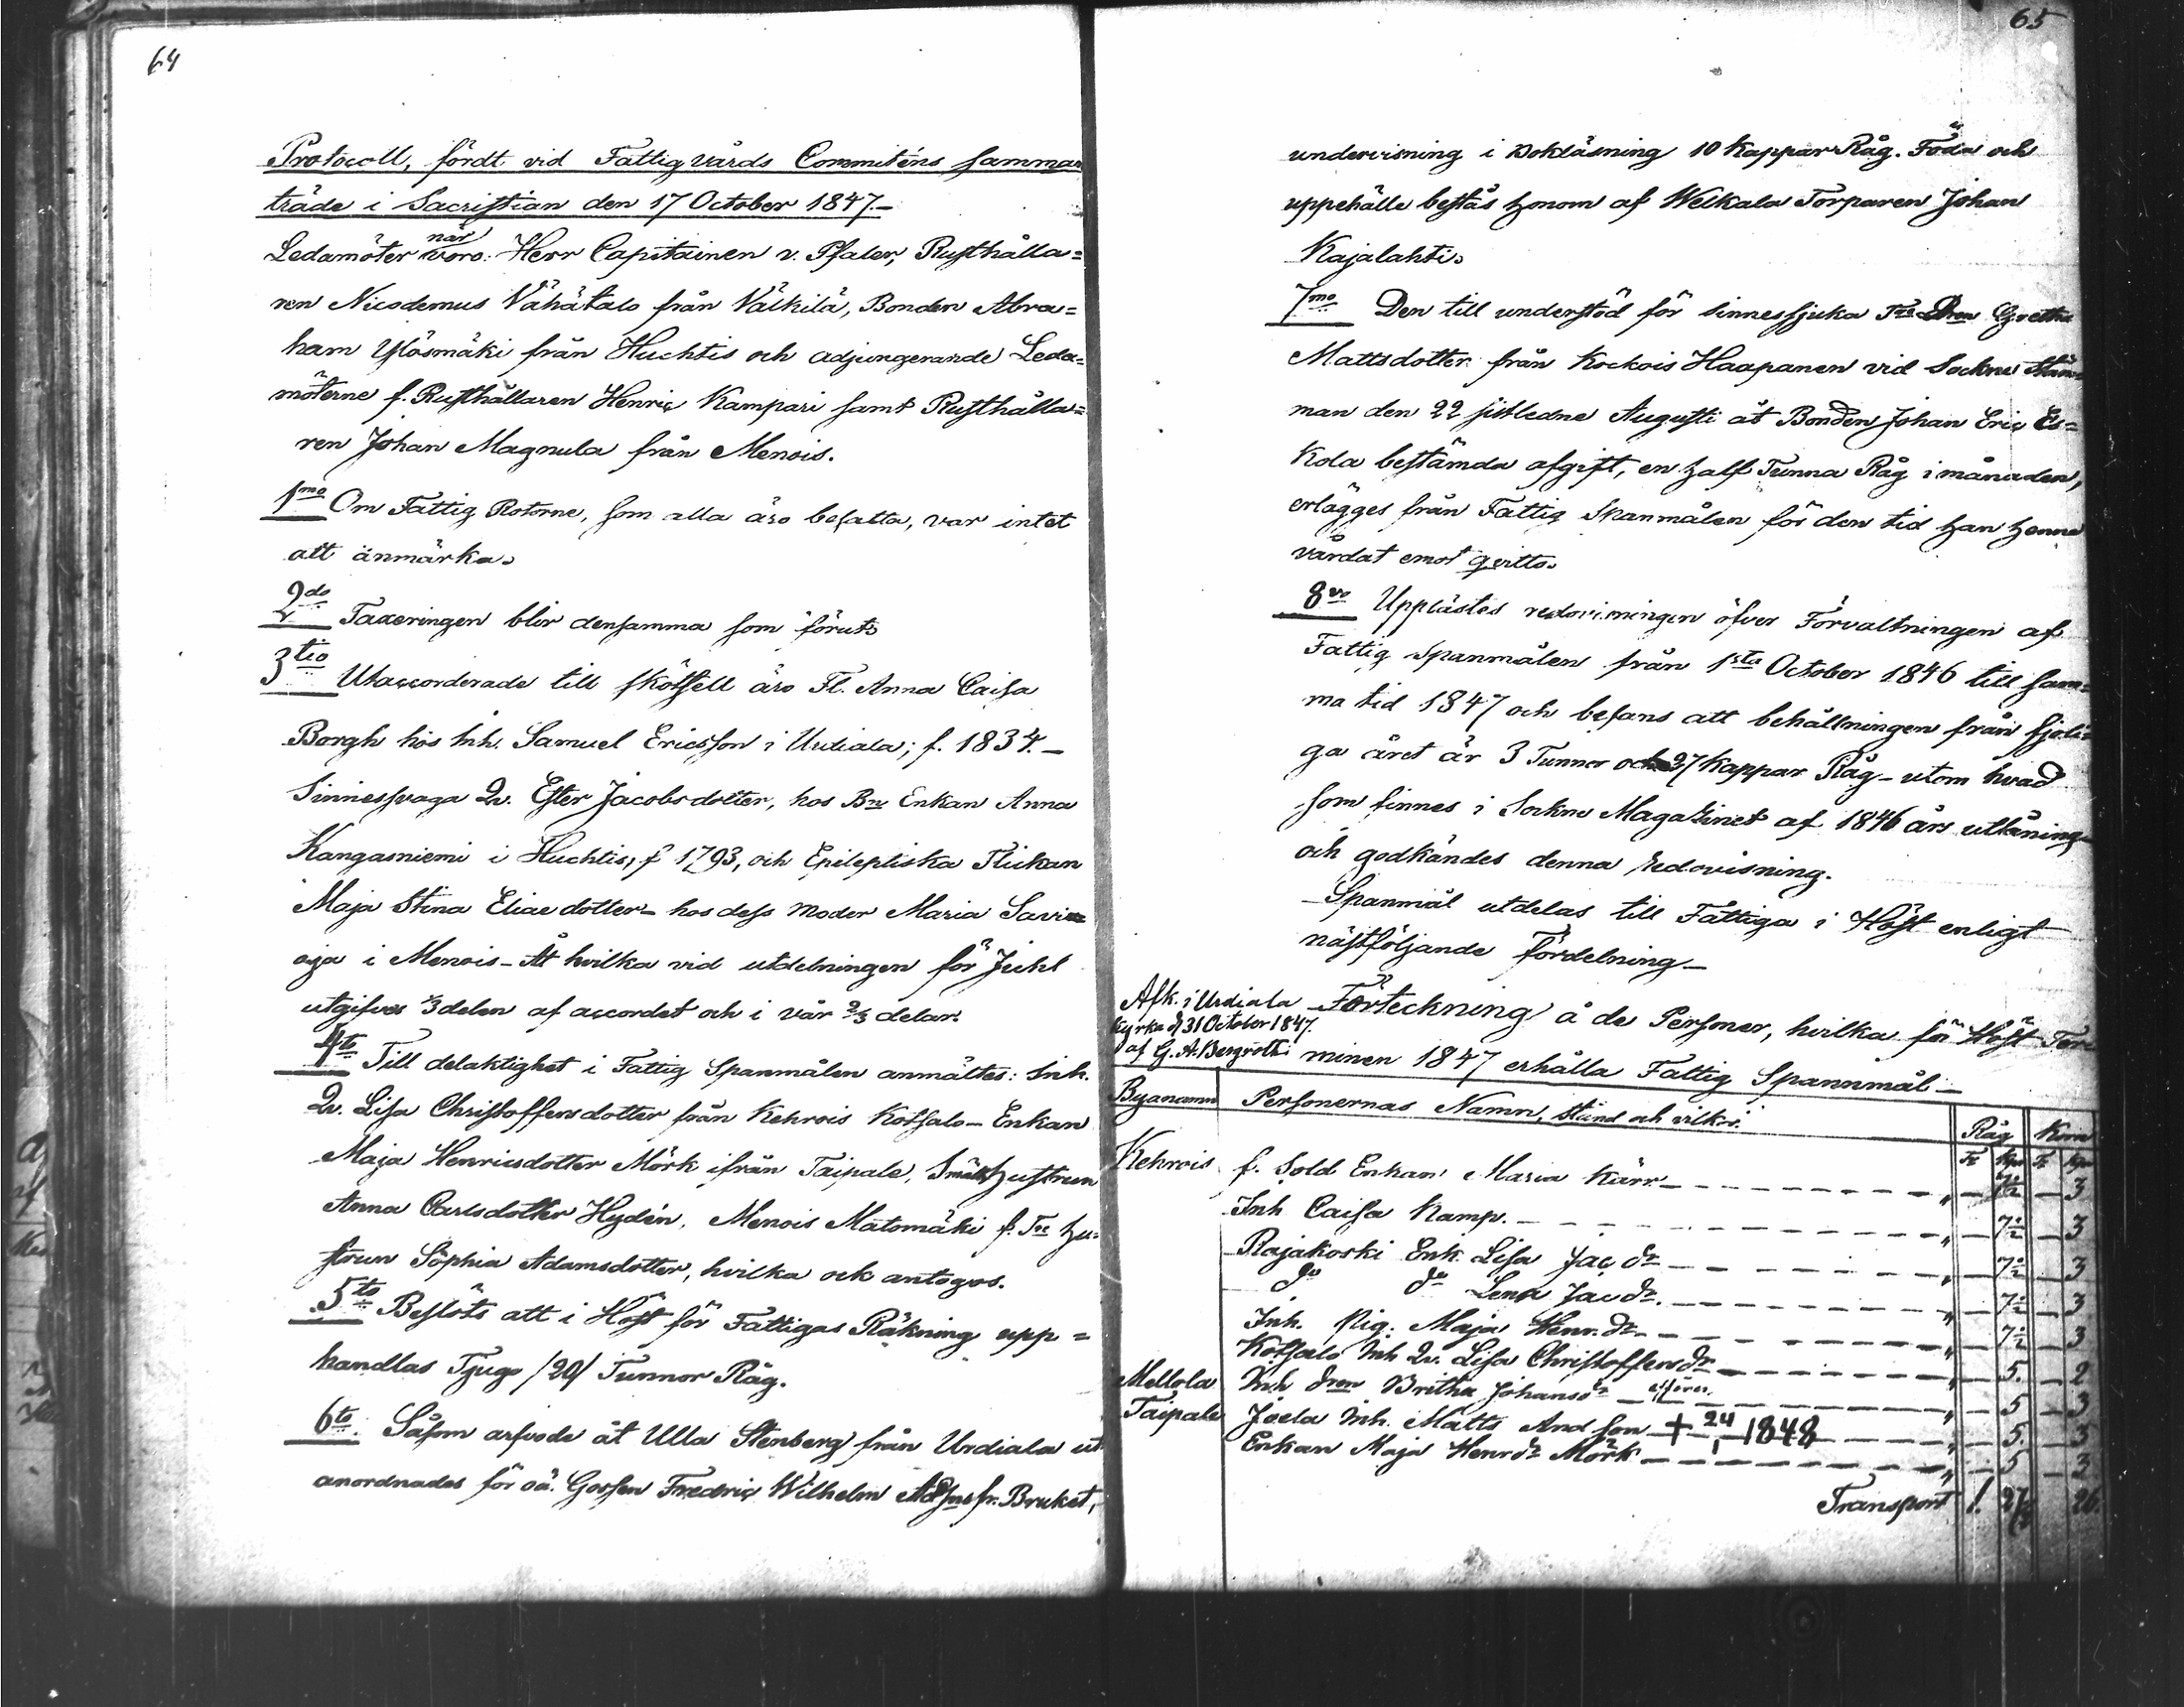 64
Protocoll, fördt vid Fattigvårds Commiténs samman
träde i Sacristian den 17 October 1847.-
Ledamöter när voro: Herr Capitainen v. Pfaler, Rusthålla=
ren Nicodemus Vähätalo från Välkilä, Bonden Abra=
ham Ylösmäki från Huchtis och adjungerande Leda=
möterne f. Rusthållaren Henric Kampari samt Rusthålla=
ren Johan Magnula från Menois.
1mo Om Fattig Rotorne, som alla äro besatta, var intet
att anmärka.
2do Taxeringen blir densamma som förut.
3tio Utaccorderade till skötsell äro Fl. Anna Caisa
Borgh hos Inh. Samuel Ericsson i Urdiala; f. 1834.-
Sinnessvaga Qv. Ester Jacobsdotter, hos Bns Enkan Anna
Kangasniemi i Huchtis, f 1793, och Epileptiska Flickan
Maja Stina Eliaedotter - hos dess Moder Maria Savi=
oja i Menois - Åt hvilka vid utdelningen för Juhl
utgifves 1/3 delen af accordet och i vår 2/3 delar.
4to Till delaktighet i Fattig Spanmålen anmältes: Inh.
Qv. Lisa Christoffersdotter från Kehrois Kotsalo - Enkan
Maja Henricsdotter Mörk ifrån Taipale, hustrun
Anna Carlsdotter Hydén, Menois Matomäki f. Trp hu=
strun Sophia Adamsdotter, hvilka ock antogos.
5to Beslöts att i Höst för Fattigas Räkning upp=
handlas Tjugo /20/ Tunnor Råg.
6to. Såsom arfvode åt Ulla Stenberg från Urdiala ut
anordnades för oä. Gossen Fredric Wilhelm fr. Bruket,
65
undervisning i Bokläsning 10 Kappar Råg. Föda och
uppehälle bestås honom af Welkala Torparen Johan
Kajalahti.
7mo Den till understöd för sinnessjuka Gretha
Mattsdotter från Kockois Haapanen vid Sockne Stäm=
man den 22 sistledne Augusti åt Bonden Johan Eric Es=
kola bestämda afgift, en half Tunna Råg i månaden,
erlägges från Fattig Spanmålen för den tid han henne
vårdat emot qvitto.
8vo Upplästes redovisningen öfver Förvaltningen af
Fattig Spanmålen från 1sta October 1846 till sam=
ma tid 1847 och befans att behållningen från fjoli=
ga året är 3 Tunnor och 27 Kappar Råg - utom hvad
som finnes i Sockne Magazinet af 1846 års utlåning
och godkändes denna redovisning.
Spanmål utdelas till Fattiga i Höst enligt
nästföljande fördelning -
Afk. i Urdiala
kyrka d 31 October 1847.
af G. A. Bergroth
Förteckning å de Personer, hvilka för Höst Ter
minen 1847 erhålla Fattig Spannmål -
Byanamn Personernas Namn, stånd och vilkor. Råg Korn
Tr Kpr Tr Kpr
Kehrois f. Sold Enkan Maria Kärr - " 7½ 3
Inh Caisa Kamp. - " 7½ 3
Rajakoski Enk. Lisa Jac dr - " 7½ 3
do do Lena Jac dr. - " 7½ 3
Inh. Pig. Maja Henr. dr - " 7½ 3
Kotsalo Inh Qv. Lisa Christoffers dr - " 5. 2
Mellola Inh Britha Johansdr - " 5 3
Taipale Joela Inh. Matts And son + 24/1 1848 " 5. 3
Enkan Maja Henrdr Mörk - " 5 3
Transport 1. 27½ 26.